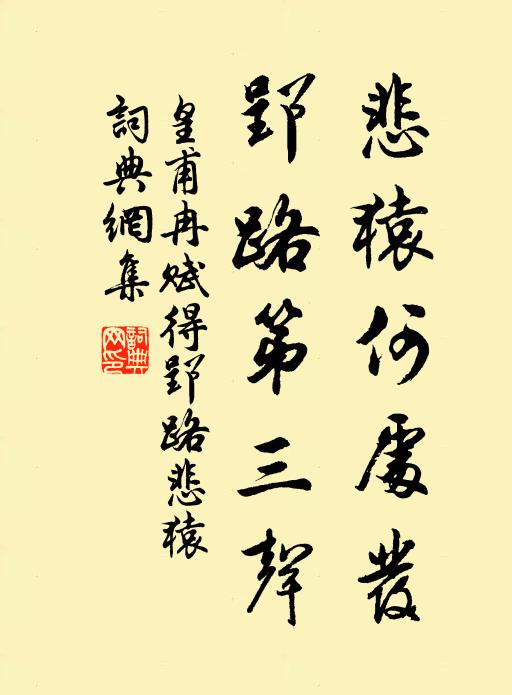 悲猿何處發
郢路第三聲
皇甫冉賦得郢路悲猿
詞典網集
詞典网印